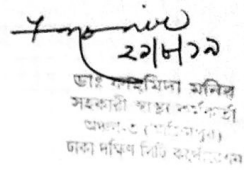 ২৯/৮/১৯
ডাঃ ফাহমিদা মনির
সহকারী স্বাস্থ্য কর্মকর্তা
অঞ্চল-৫
ঢাকা দক্ষিণ সিটি কর্পোরেশন